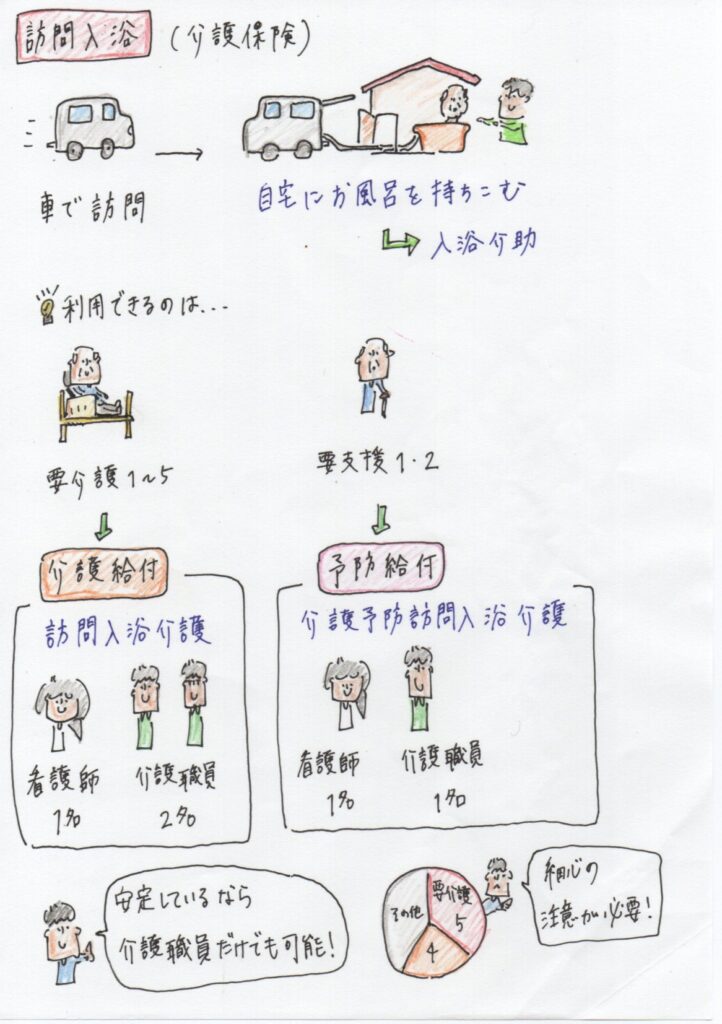 訪問入浴 (介護保険)
車で訪問
自宅にお風呂を持ちこむ
入浴介助
利用できるのは...
要介護1~5
要支援1・2
介護給付
訪問入浴介護
看護師
1名
介護職員
2名
予防給付
介護予防訪問入浴介護
看護師
1名
介護職員
1名
安定しているなら
介護職員だけでも可能!
その他
要介護
5
4
細心の
注意が必要!